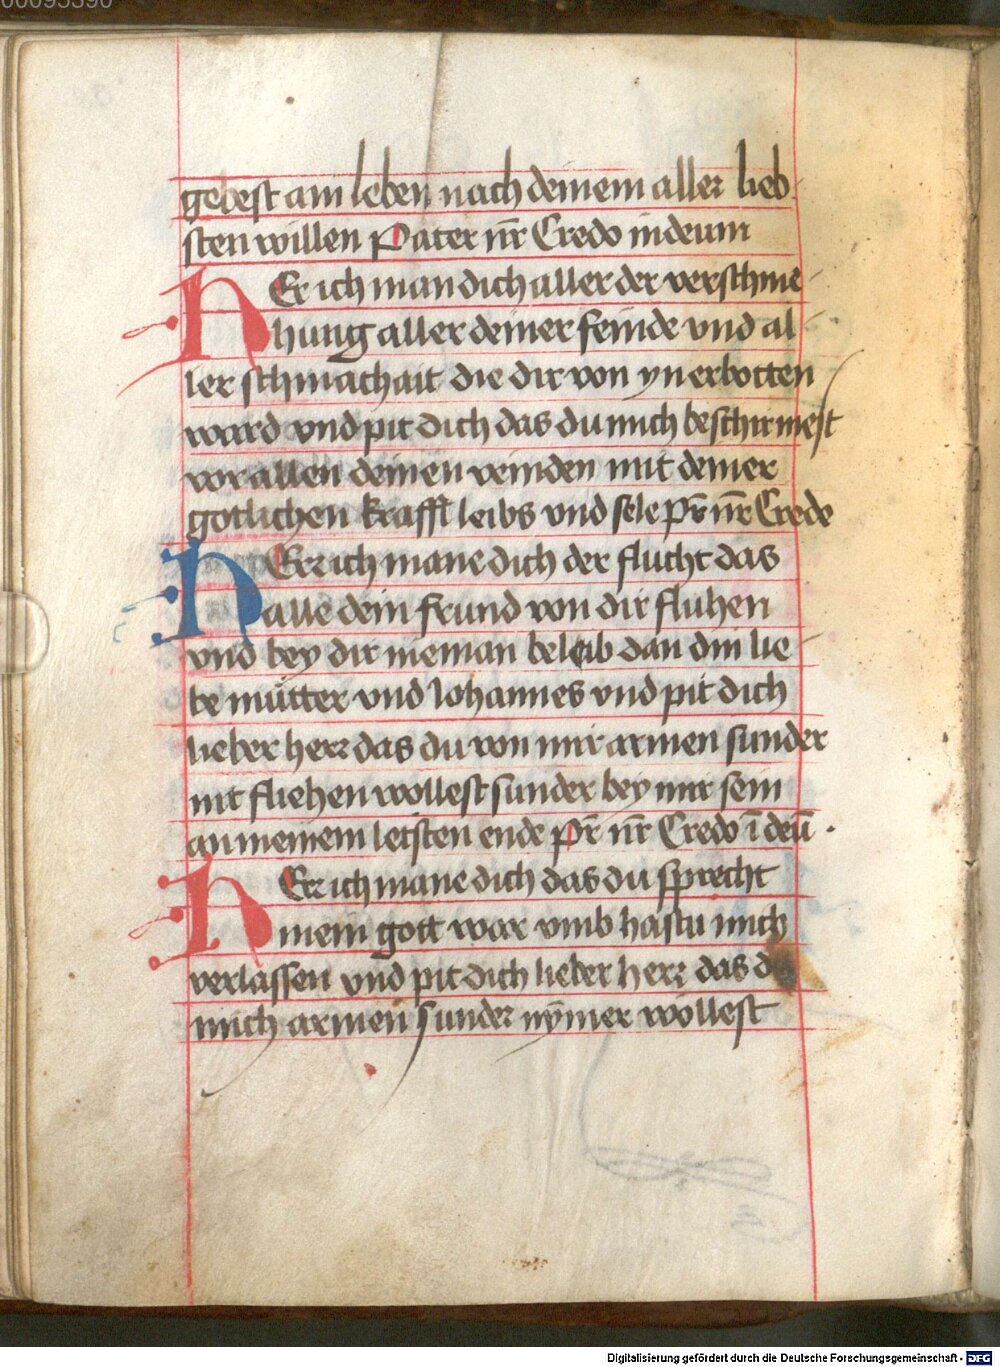 00095390
gebest ain leben nach deinem aller lieb
sten willen Pater nr̄ Credo in deum
HEr ich man dich aller der verschme
hung aller deiner feinde vnd al
ler schmachait die dir von yn erbotten
ward vnd pit dich das du mich beschirmest
vor allen deinen veinden mit deiner
gotlichen krafft leibs vnd sele pr̄ nr̄ Credo
HErr ich mane dich der flucht das
alle dein frund von dir fluhen
vnd bey dir nieman beleib dan din lie
be můtter vnd Johannes vnd pit dich
lieber herr das du von mir armen sunder
nit fliehen wollest sunder bey mir sein
an meinem letsten ende pr̄ nr̄ Credo ī deū .
HErr ich mane dich das du sprecht
mein gott war vmb hastu mich
verlassen vnd pit dich lieber herr das d
mich armen sunder nȳmer wöllest
Digitalisierung gefördert durch die Deutsche Forschungsgemeinschaft - DFG